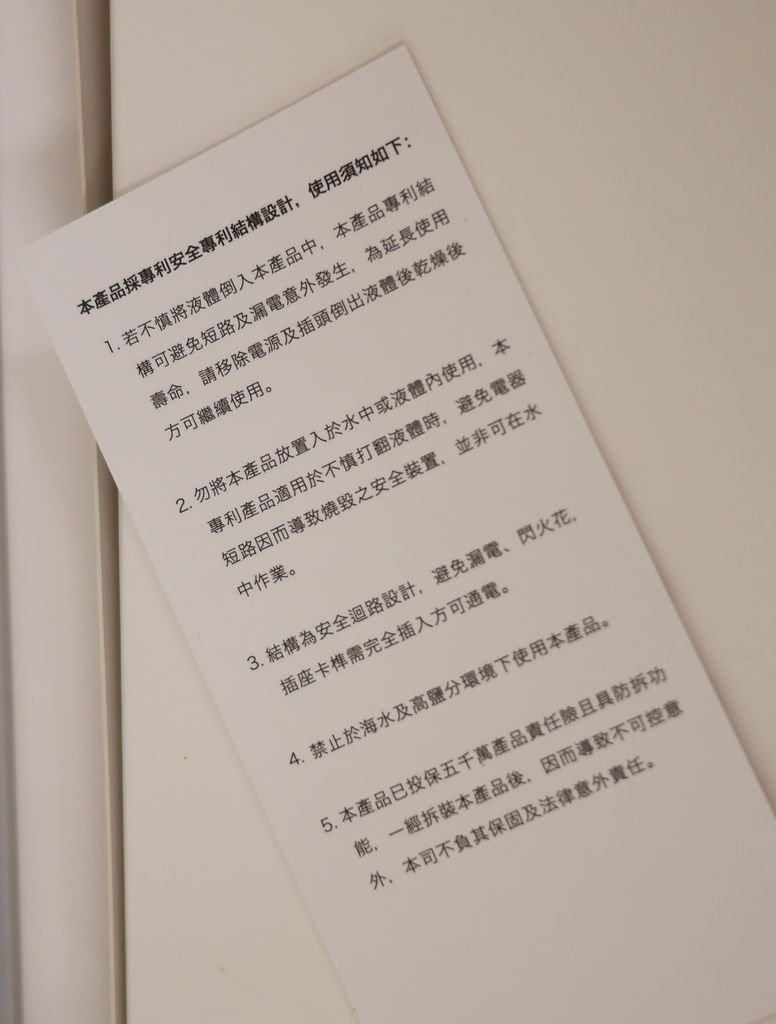 本產品採專利安全專利結構設計，使用須知如下：
1. 若不慎將液體倒入本產品中，本產品專利結
構可避免短路及漏電意外發生，為延長使用
壽命，請移除電源及插頭倒出液體後乾燥後
方可繼續使用。
2. 勿將本產品放置入於水中或液體內使用，本
專利產品適用於不慎打翻液體時，避免電器
短路因而導致燒毀之安全裝置，並非可在水
中作業。
3. 結構為安全迴路設計，避免漏電、閃火花，
插座卡榫需完全插入方可通電。
4. 禁止於海水及高鹽分環境下使用本產品。
5. 本產品已投保五千萬產品責任險且具防拆功
能，一經拆裝本產品後，因而導致不可控意
外，本司不負其保固及法律意外責任。